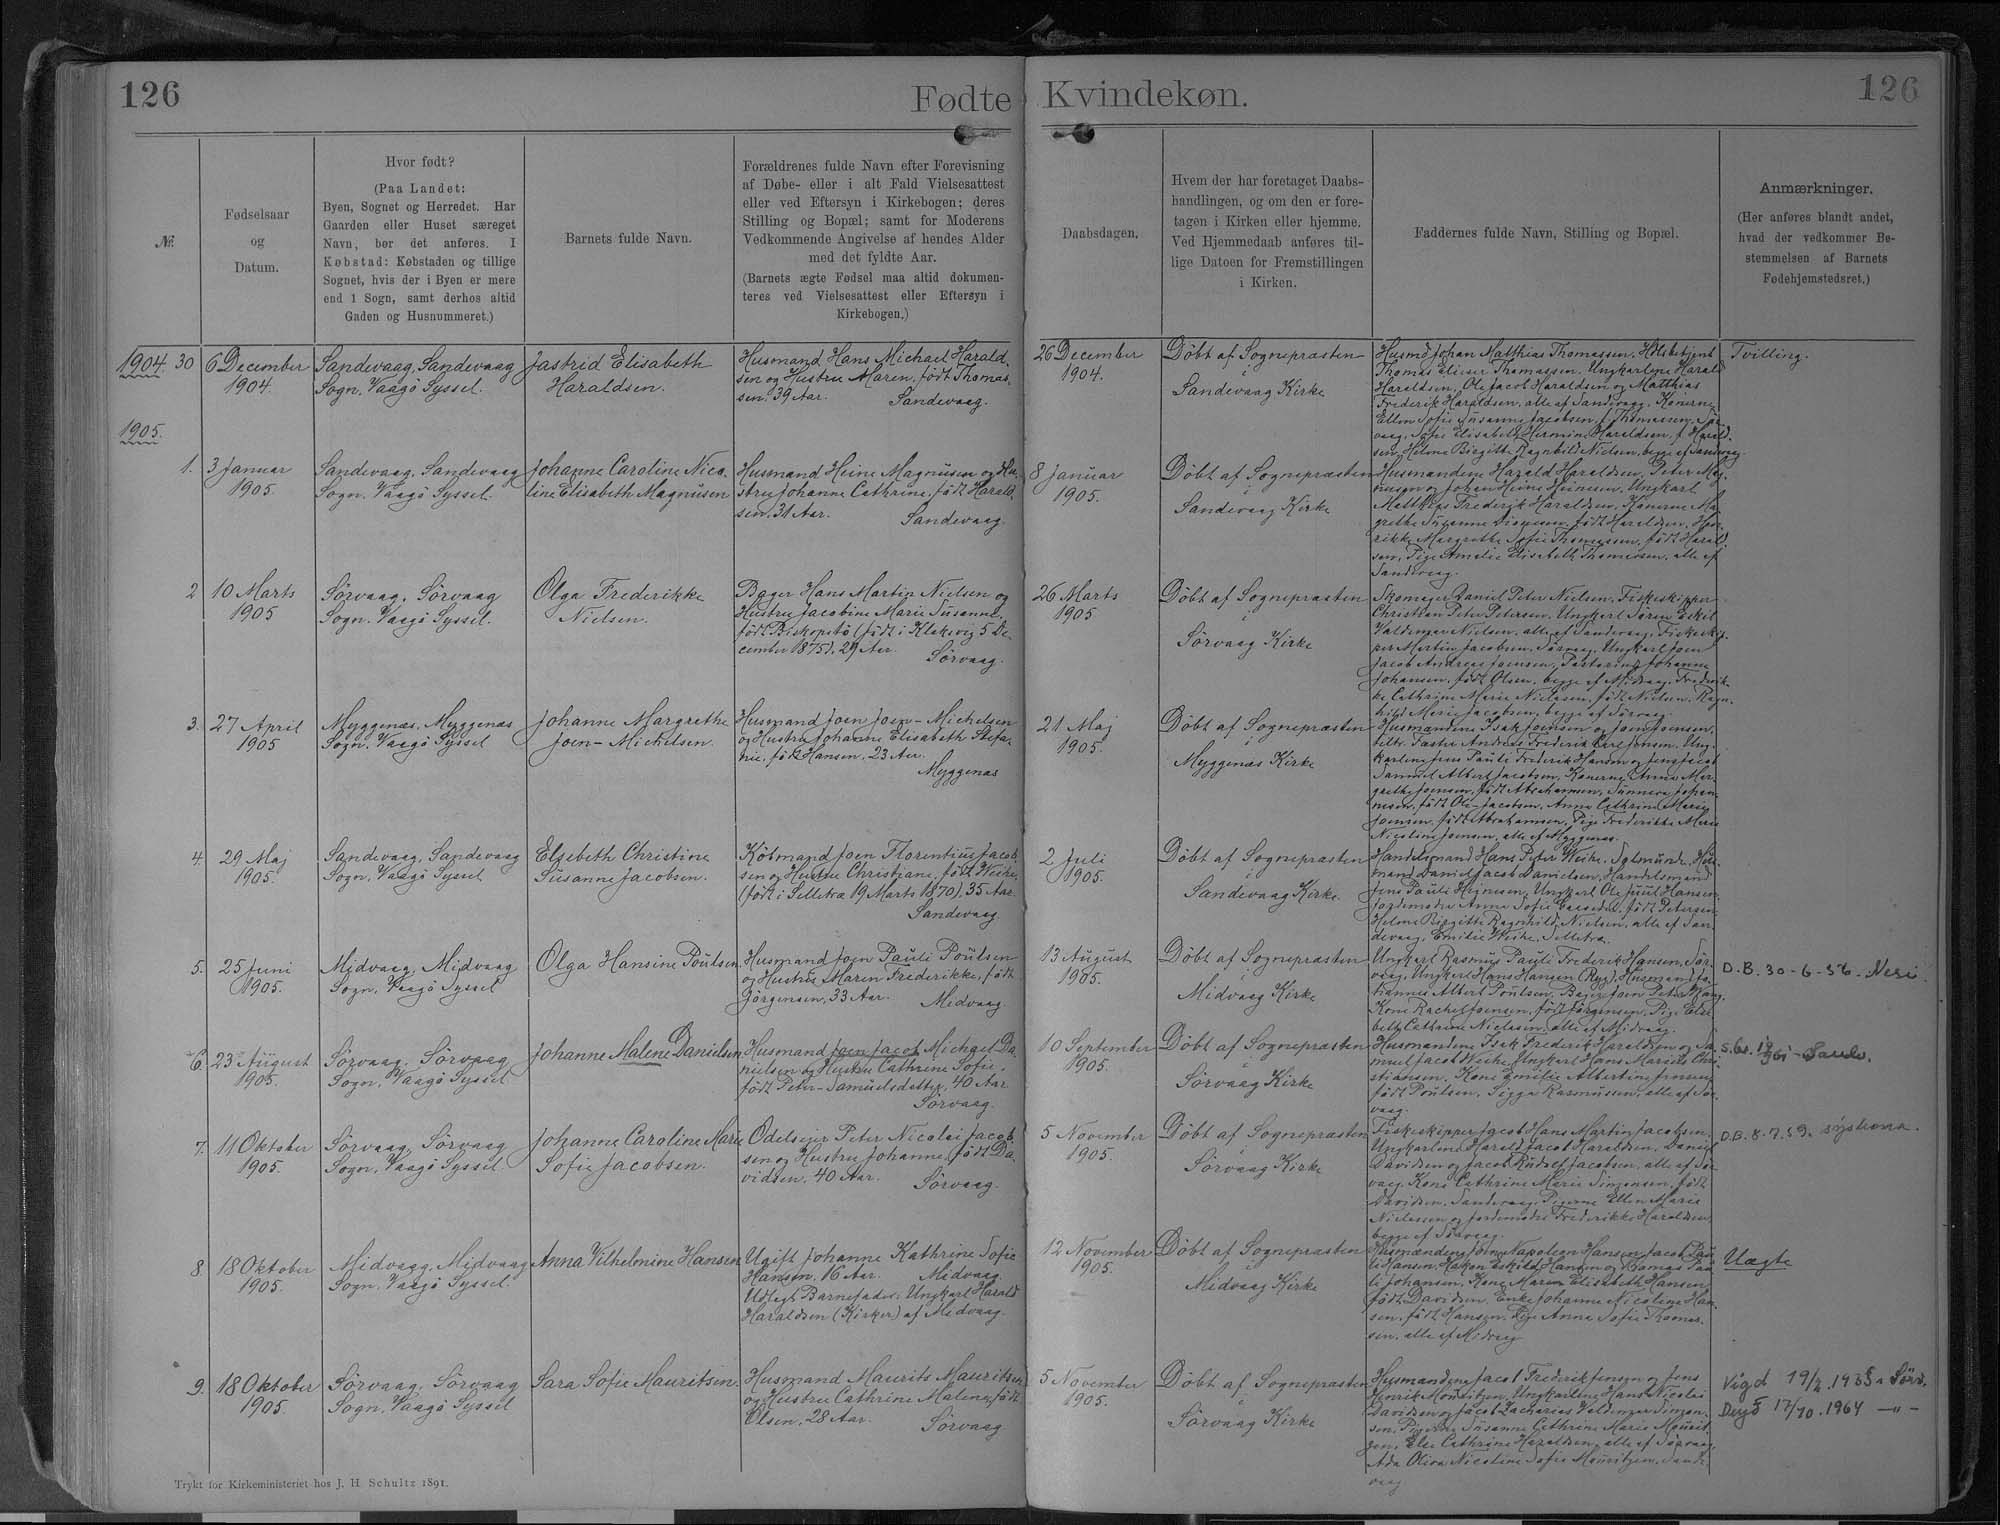 126
Fødte
Kvindekøn.
126
Nr.
Fødselsaar
og
Datum.
Hvor født?
(Paa Landet:
Byen, Sognet og Herredet. Har
Gaarden eller Huset særeget
Navn, bør det anføres. I
Købstad: Købstaden og tillige
Sognet, hvis der i Byen er mere
end 1 Sogn, samt derhos altid
Gaden og Husnummeret.)
Barnets fulde Navn.
Forældrenes fulde Navn efter Forevisning
af Døbe- eller i alt Fald Vielsesattest
eller ved Eftersyn i Kirkebogen; deres
Stilling og Bopæl; samt for Moderens
Vedkommende Angivelse af hendes Alder
med det fyldte Aar.
(Barnets ægte Fødsel maa altid dokumen-
teres ved Vielsesattest eller Eftersyn i
Kirkebogen.)
Daabsdagen.
Hvem der har foretaget Daabs-
handlingen, og om den er fore-
tagen i Kirken eller hjemme.
Ved Hjemmedaab anføres til-
lige Datoen for Fremstillingen
i Kirken.
Faddernes fulde Navn, Stilling og Bopæl.
Anmærkninger.
(Her anføres blandt andet,
hvad der vedkommer Be-
stemmelsen af Barnets
Fødehjemstedsret.)
1904. 30
6 December
1904.
Sandevaag, Sandevaag
Sogn, Vaagö Syssel.
Jastrid Elisabeth
Haraldsen.
Husmand Hans Michael Harald-
sen og Hustru Maren, født Thomas-
sen, 39 Aar.
Sandevaag.
26 December
1904.
Döbt af Sognepræsten
i
Sandevaag Kirke
Husmd Johan Matthias Thomassen,
Thomas Elieser Thomassen, Ungkarlene Harald
Haraldsen, Ole Jacob Haraldsen og Matthias
Frederik Haraldsen, alle af Sandevaag, Konerne
Ellen Sofie Susanne Jacobsen, f. Thomassen,
Sofie Elisabeth Hermine Haraldsen, f. Harald-
sen, Helene Birgitte Ragnhild Nielsen, begge af Sandevaag.
Tvilling.
1905.
1.
3 Januar
1905.
Sandevaag, Sandevaag
Sogn, Vaagö Syssel.
Johanne Caroline Nico-
line Elisabeth Magnusen
Husmand Heine Magnusen og Hu-
stru Johanne Cathrine, født Harald-
sen, 31 Aar.
Sandevaag.
8 Januar
1905.
Döbt af Sognepræsten
i
Sandevaag Kirke
Husmandene Harald Haraldsen, Peter Mag-
nusen og Johan Heine Heinesen, Ungkarl
Matthias Frederik Haraldsen, Konerne Ma-
grethe Susanne født Haraldsen, Hen-
rikke Margrethe Sofie Thomassen, født Harald-
sen, Pige Amalie Elisabeth Thomassen, alle af
Sandevaag.
2
10 Marts
1905
Sörvaag, Sörvaag
Sogn, Vaagö Syssel.
Olga Frederikke
Nielsen.
Bager Hans Martin Nielsen og
Hustru Jacobine Marie Susanne,
født Biskopstö (født i Klaksvig 5 De-
cember 1875), 29 Aar.
Sörvaag.
26 Marts
1905
Döbt af Sognepræsten
i
Sörvaag Kirke
Skomager Daniel Peter Nielsen, Fiskeskipper
Christian Peter Petersen, Ungkarl Sören Eskil
Valdemar Nielsen, alle af Sandevaag, Fiskeskip-
per Martin Jacobsen, Sörvaag, Ungkarl Joen
Jacob Andreas Joensen, Johanne
Johansen, født Olsen, begge af Midvaag, Frederik-
ke Cathrine Marie Nielasen, født Nielsen, Ragn-
hild Marie Jacobsen, begge af Sörvaag.
3.
27 April
1905
Myggenæs, Myggenæs
Sogn, Vaagö Syssel
Johanne Margrethe
Joen-Michelsen.
Husmand Joen Joen-Michelsen
og Hustru Johanne Elisabeth Stefa-
nie, født Hansen, 23 Aar.
Myggenæs
21 Maj
1905.
Döbt af Sognepræsten
i
Myggenæs Kirke
Husmandene Isak Joensen og Joen Joensen,
Andreas Frederik Carl Jensen, Ung-
karlene Jens Pauli Frederik Hansen og Jens Jacob
Samuel Albert Jacobsen, Konerne Anna Mar-
grethe Joensen, født Abrahamsen, Sunneva Johan-
nesen, født Ole-Jacobsen, Anna Cathrine Marie
Joensen, født Abrahamsen, Pige Frederikke Marie
Nicoline Joensen, alle af Myggenæs.
4.
29 Maj
1905.
Sandevaag, Sandevaag
Sogn, Vaagö Syssel
Elsebeth Christine
Susanne Jacobsen.
Köbmand Joen Florentius Jacob-
sen og Hustru Christiane, født Weihe,
(født i Selletræ 19 Marts 1870), 35 Aar.
Sandevaag
2 Juli
1905.
Döbt af Sognepræsten
i
Sandevaag Kirke.
Handelsmand Hans Peter Weihe, Selmunde, Hus-
mand Daniel Jacob Danielsen, Handelsmand
Jens Pauli Heinesen, Ungkarl Ole Juul Hansen,
Jordemoder Anna Sofie født Petersen,
Helene Birgitte Ragnhild Nielsen, alle af San-
devaag, Emilie Weihe, Selletræ.
5.
25 Juni
1905.
Midvaag, Midvaag
Sogn, Vaagö Syssel
Olga Hansine Poulsen.
Husmand Joen Pauli Poulsen
og Hustru Maren Frederikke, født
Jörgensen, 33 Aar.
Midvaag.
13 August
1905.
Döbt af Sognepræsten
i
Midvaag Kirke
Ungkarl Rasmus Pauli Frederik Hansen, Sör-
vaag, Ungkarl Hans Hansen (Ryg), Husmand Jo-
hannes Albert Poulsen, Bager Joen Peter
Kone Rachel Joensen, født Jörgensen, Pige Else-
beth Cathrine Nielasen, alle af Midvaag.
D.B. 30-6-56. Neri.
6.
23 August
1905.
Sörvaag, Sörvaag
Sogn, Vaagö Syssel
Johanne Malene Danielsen
Husmand Joen Jacob Michael Da-
nielsen og Hustru Cathrine Sofie,
født Peter-Samuelsdatter, 40 Aar
Sörvaag.
10 September
1905.
Döbt af Sognepræsten
i
Sörvaag Kirke
Husmandene Isak Frederik Haraldsen og Sa-
muel Jacob Weihe, Ungkarl Hans Marius Chri-
stiansen, Kone Emilie Albertine Jensen,
født Poulsen, Sigga Rasmussen, alle af Sör-
vaag.
7.
11 Oktober
1905.
Sörvaag, Sörvaag
Sogn, Vaagö Syssel.
Johanne Caroline Marie
Sofie Jacobsen.
Odelsejer Peter Nicolai Jacob-
sen og Hustru Johanne, født Da-
vidsen, 40 Aar.
Sörvaag.
5 November
1905.
Döbt af Sognepræsten
i
Sörvaag Kirke
Fiskeskipper Jacob Hans Martin Jacobsen,
Ungkarlene Harald Jacob Haraldsen, Daniel
Davidsen og Jacob Rudolf Jacobsen, alle af Sör-
vaag, Kone Cathrine Marie Simonsen, født
Davidsen, Sandevaag, Pigerne Ellen Marie
Nielassen og Jordemoder Frederikke Haraldsen,
begge af Sörvaag.
D.B. 8.7.59.
8
18 Oktober
1905.
Midvaag, Midvaag
Sogn, Vaagö Syssel
Anna Vilhelmine Hansen
Ugift Johanne Kathrine Sofie
Hansen, 16 Aar. Midvaag.
Udlagt Barnefader: Ungkarl Harald
Haraldsen (Kirker) af Midvaag.
12 November
1905.
Döbt af Sognepræsten
i
Midvaag Kirke
Husmændene Joen Napoleon Hansen, Jacob Pau-
li Hansen, Hakon Eskild Hansen og Thomas Pau-
li Johansen, Kone Maren Elisabeth Hansen,
født Davidsen, Enke Johanne Nicoline Han-
sen, født Hansen, Pige Anna Sofie Thomas-
sen, alle af Midvaag
Uægte
9.
18 Oktober
1905
Sörvaag, Sörvaag
Sogn, Vaagö Syssel
Sara Sofie Mauritsen.
Husmand Maurits Mauritsen
og Hustru Cathrine Malene, født
Olsen, 28 Aar.
Sörvaag
5 November
1905.
Döbt af Sognepræsten
i
Sörvaag Kirke
Husmandene Jacob Frederik Jensen og Jens
Henrik Mouritzen, Ungkarlene Hans Nicolai
Davidsen og Jacob Zacharias Valdemar Simon-
sen, Pigerne Susanne Cathrine Marie Mourit-
zen, Else Cathrine Haraldsen, alle af Sörvaag,
Ada Oliva Nicoline Sofie Mouritzen, Sande-
vaag
Vigd 19/2.1935 Sörv.
17/10.1964 -"-
Trykt for Kirkeministeriet hos J. H. Schultz 1891.